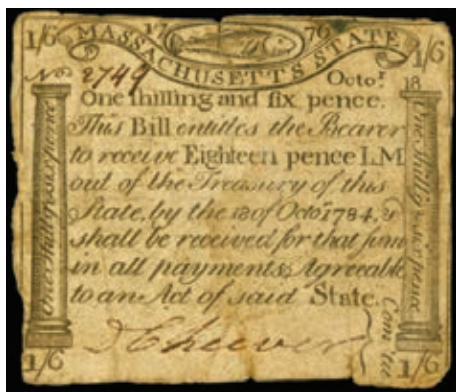 1/6 17 76 1/6
MASSACHUSETTS STATE
No 2749 Octor. 18
One shilling and six pence.
This Bill entitles the Bearer
to receive Eighteen pence L.M
out of the Treasury of this
State, by the 18 of Octor 1784, &
shall be received for that sum
in all payments, Agreeable
to an Act of said State.
One shilling & six pence
One Shillg & six pence
D Cheever
Com'tee
1/6 1/6